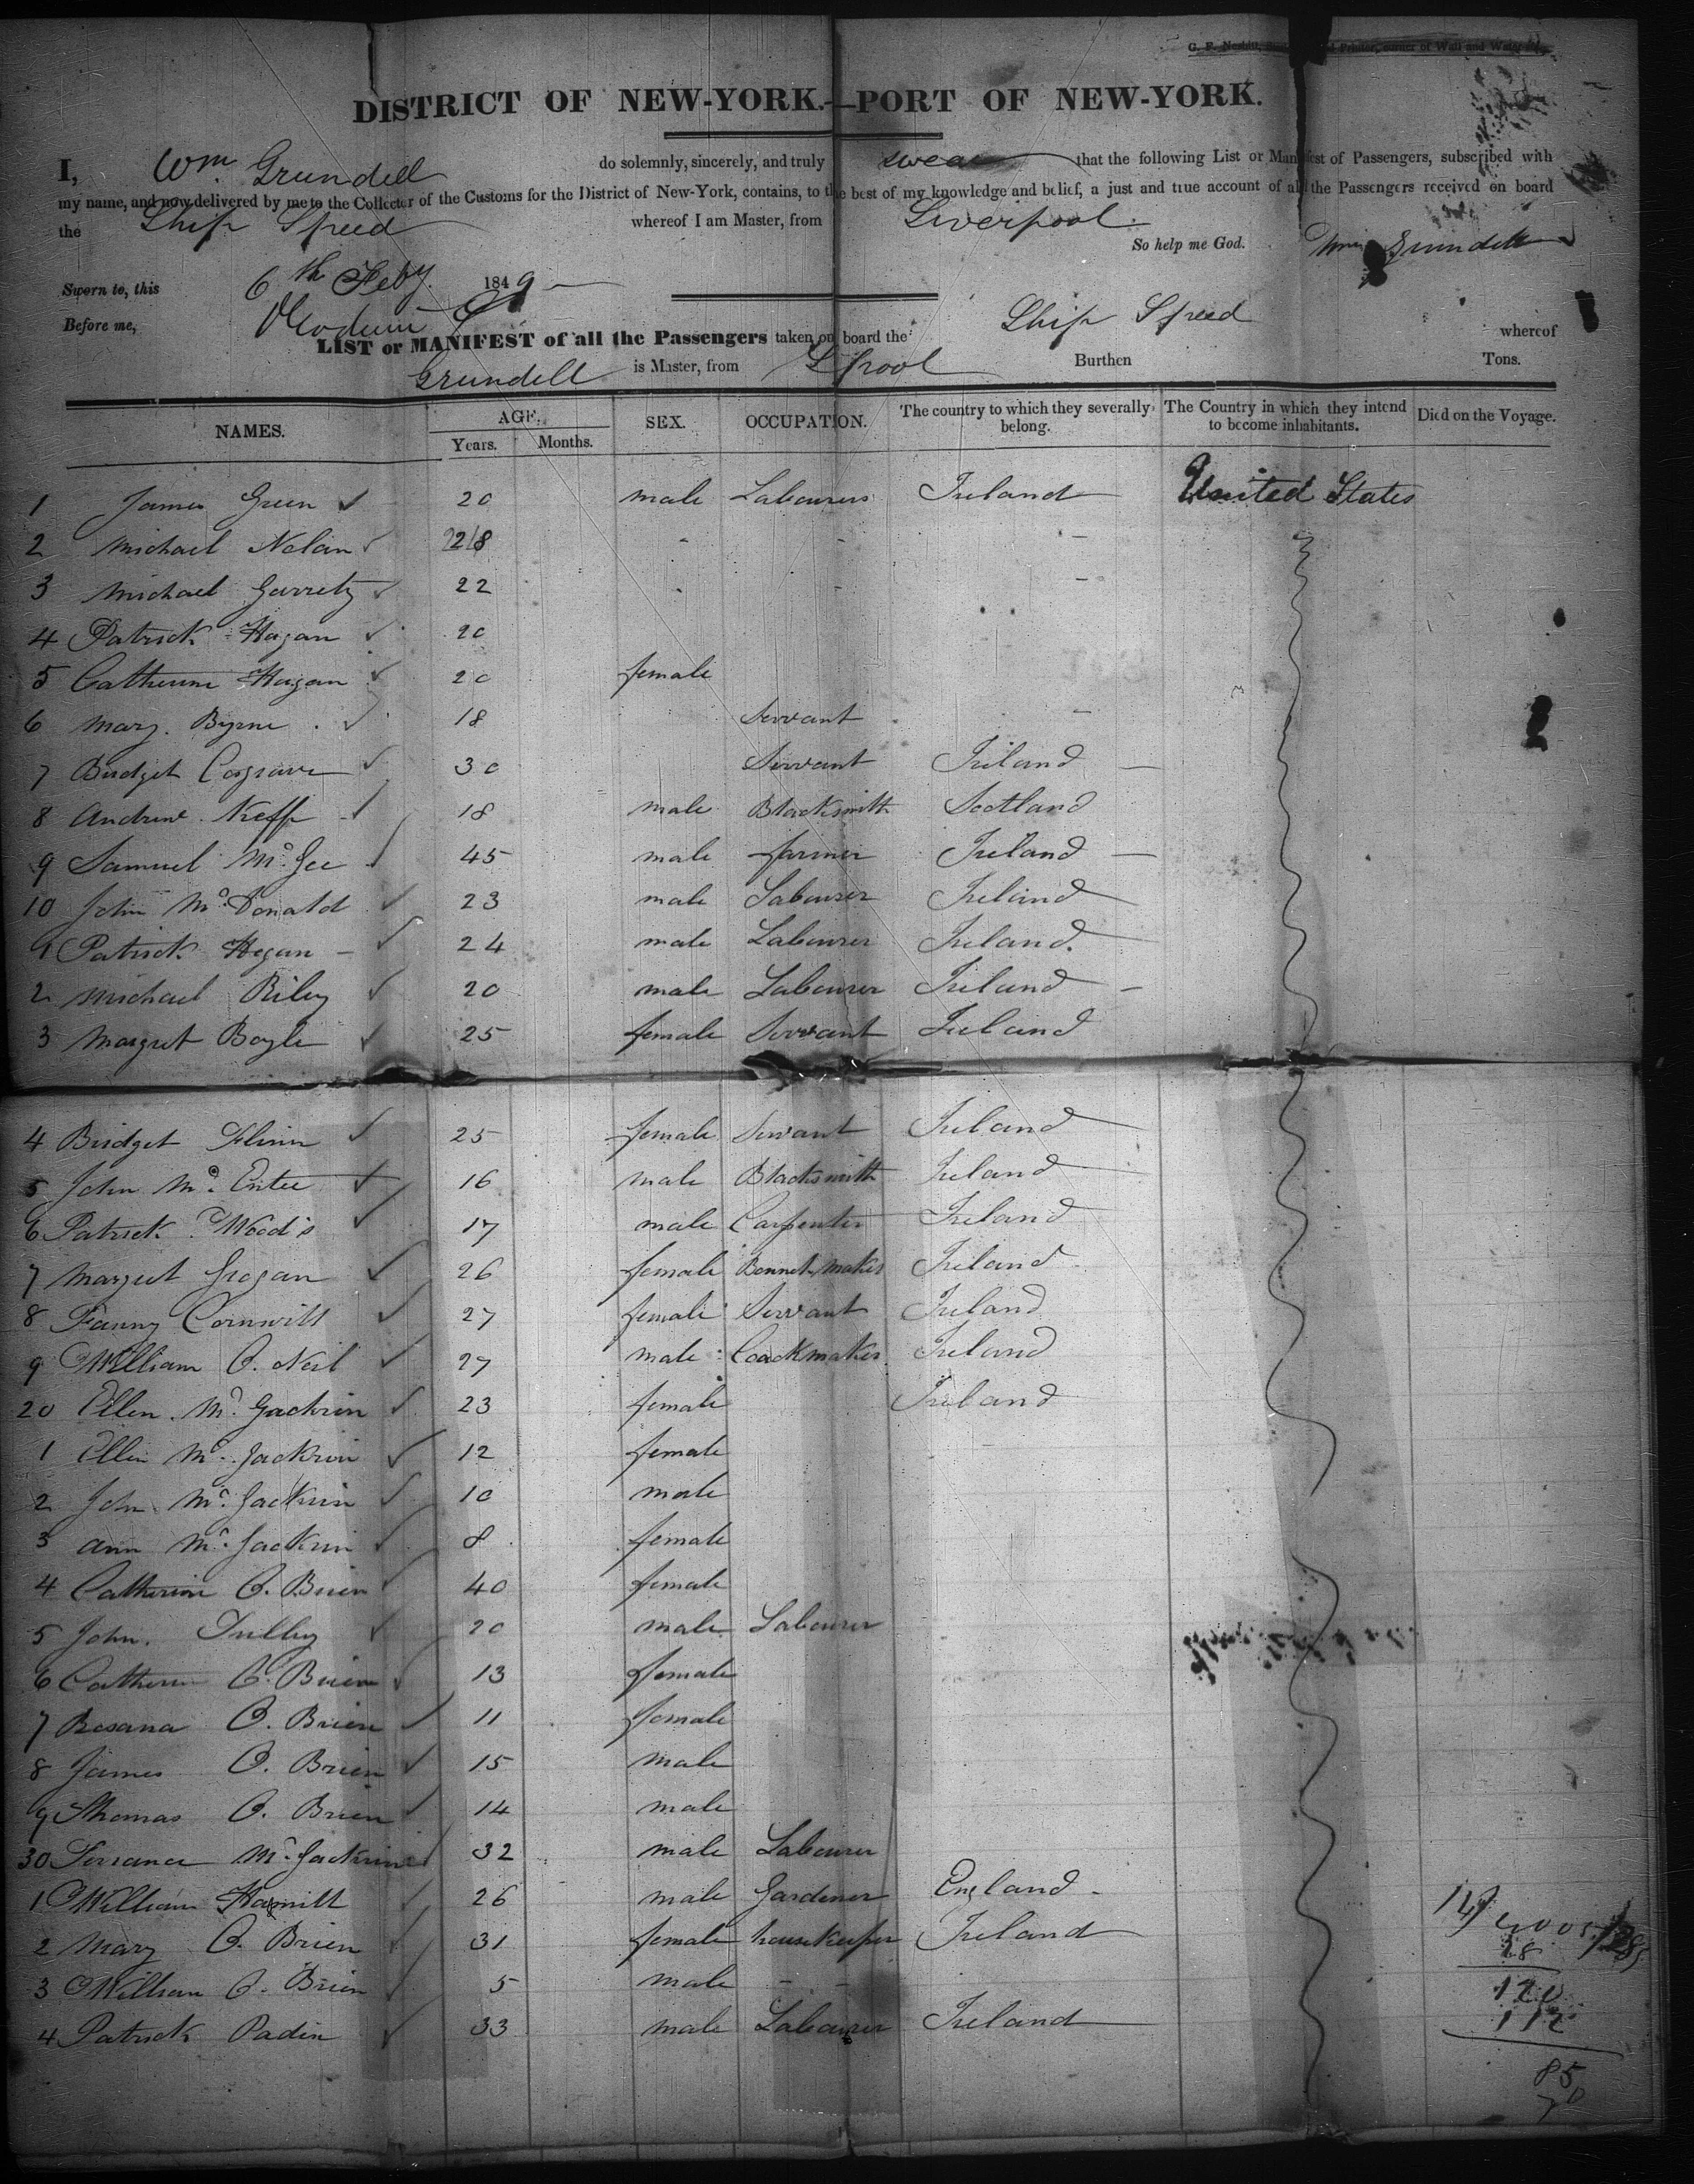 DISTRICT OF NEW-YORK.—PORT OF NEW-YORK.
I, Wm. Grundell do solemnly, sincerely, and truly swear that the following List or Manifest of Passengers, subscribed with
my name, and now delivered by me to the Collector of the Customs for the District of New-York, contains, to the best of my knowledge and belief, a just and true account of all the Passengers received on board
the Ship Speed whereof I am Master, from Liverpool.
So help me God. Wm Grundell
Sworn to, this 6th Feby. 1849
Before me,
LIST or MANIFEST of all the Passengers taken on board the Ship Speed whereof
Grundell is Master, from L'pool Burthen Tons.
NAMES. AGE. SEX. OCCUPATION. The country to which they severally belong. The Country in which they intend to become inhabitants. Died on the Voyage.
Years. Months.
1 James Green 20 male Labourers Ireland United States
2 Michael Nolan 28
3 Michael Garrety 22
4 Patrick Hagan 20
5 Catherine Hagan 20 female
6 Mary Byrne 18 Servant
7 Bridget Cosgrave 30 Servant Ireland
8 Andrew 18 male Blacksmith Scotland
9 Samuel Mc Gee 45 male farmer Ireland
10 John Mc Donald 23 male Labourer Ireland
1 Patrick Hagan 24 male Labourer Ireland.
2 Michael Riley 20 male Labourer Ireland
3 Margret Boyle 25 female Servant Ireland
4 Bridget Flinn 25 female Servant Ireland
5 John Mc Entee 16 male Blacksmith Ireland
6 Patrick Woods 17 male Carpenter Ireland
7 Margret Grogan 26 female Bonnet maker Ireland
8 Fanny Cornwill 27 female Servant Ireland
9 William O. Neil 27 male Coachmaker Ireland
20 Ellen Mc Gackrin 23 female Ireland
1 Ellen Mc Gackrin 12 female
2 John Mc Gackrin 10 male
3 Ann Mc Gackrin 8 female
4 Catherine O. Brien 40 female
5 John. Tulley 20 male Labourer
6 Catherine O. Brien 13 female
7 Rosana O. Brien 11 female
8 James O. Brien 15 male
9 Thomas O. Brien 14 male
30 Terrance Mc Gackrin 32 male Labourer
1 William Hamill 26 male Gardener England
2 Mary O. Brien 31 female housekeeper Ireland
3 William O. Brien 5 male
4 Patrick Padin 33 male Labourer Ireland
28
120
112
85
70